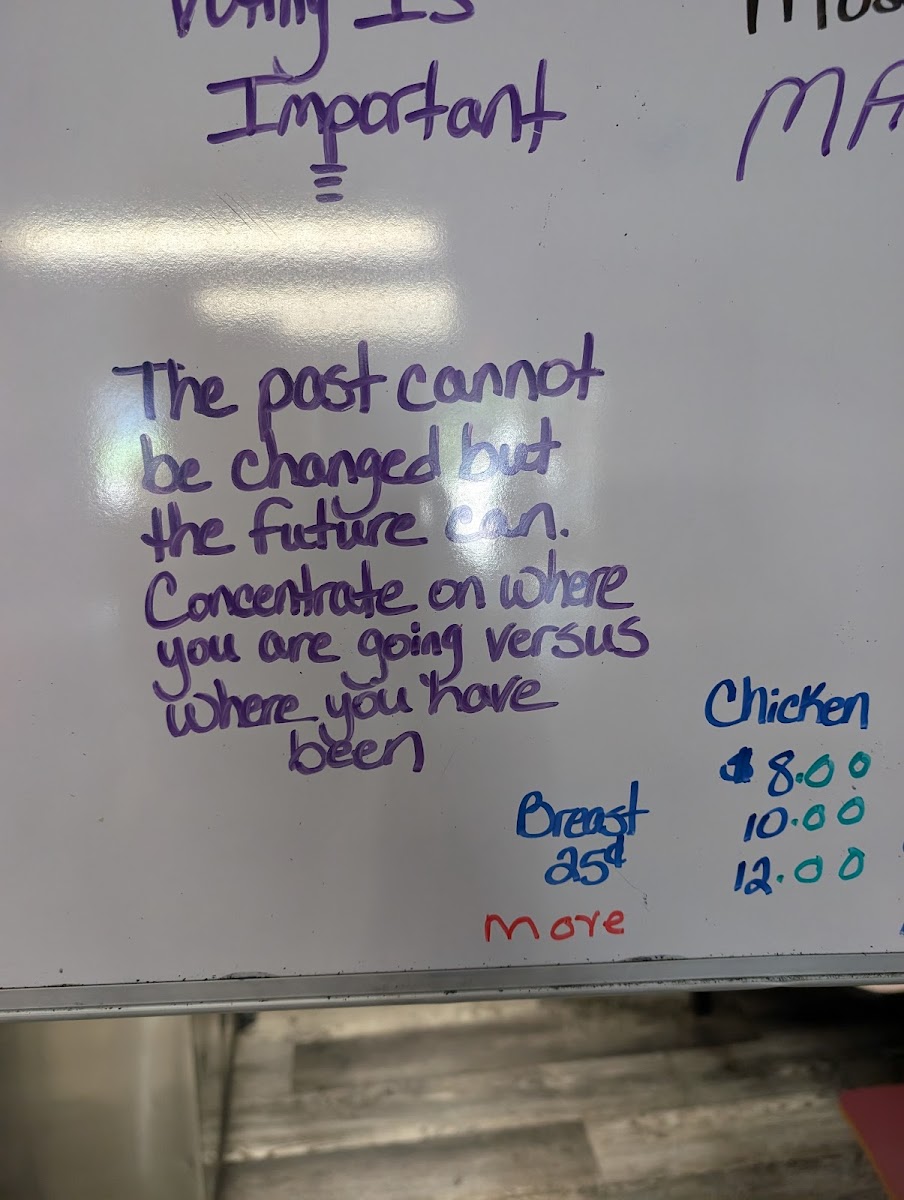 Voting Is
Important
The past cannot
be changed but
the future can.
Concentrate on where
you are going versus
where you have
been
Chicken
$8.00
10.00
12.00
Breast
25¢
more